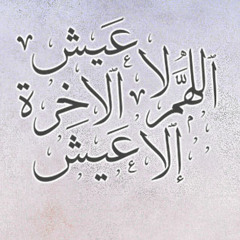 اَللّٰهُمَّ لَا عَيْشَ
إِلَّا عَيْشَ الْآخِرَةِ